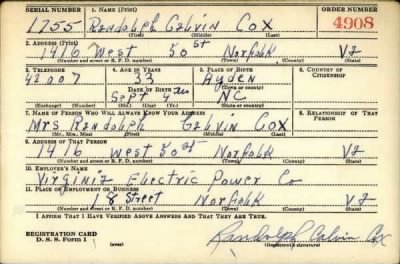 SERIAL NUMBER 1. NAME (Print) ORDER NUMBER
1755 Randolph Calvin Cox 4908
(First) (Middle) (Last)
2. ADDRESS (Print)
1416 West 50st Norfolk Va
(Number and street or R. F. D. number) (Town) (County) (State)
3. TELEPHONE 4. AGE IN YEARS 5. PLACE OF BIRTH 6. COUNTRY OF CITIZENSHIP
42007 33 Ayden
DATE OF BIRTH (Town or county)
Sept 4 NC
(Exchange) (Number) (Mo.) (Day) (Yr.) (State or country)
7. NAME OF PERSON WHO WILL ALWAYS KNOW YOUR ADDRESS 8. RELATIONSHIP OF THAT PERSON
Mrs Randolph Calvin Cox
(Mr., Mrs., Miss) (First) (Middle) (Last)
9. ADDRESS OF THAT PERSON
1416 West 50st Norfolk Va
(Number and street or R. F. D. number) (Town) (County) (State)
10. EMPLOYER'S NAME
Virginia Electric Power Co
11. PLACE OF EMPLOYMENT OR BUSINESS
18 Street Norfolk Va
(Number and street or R. F. D. number) (Town) (County) (State)
I AFFIRM THAT I HAVE VERIFIED ABOVE ANSWERS AND THAT THEY ARE TRUE.
REGISTRATION CARD
D. S. S. Form 1 (over) Randolph Calvin Cox
(Registrant's signature)